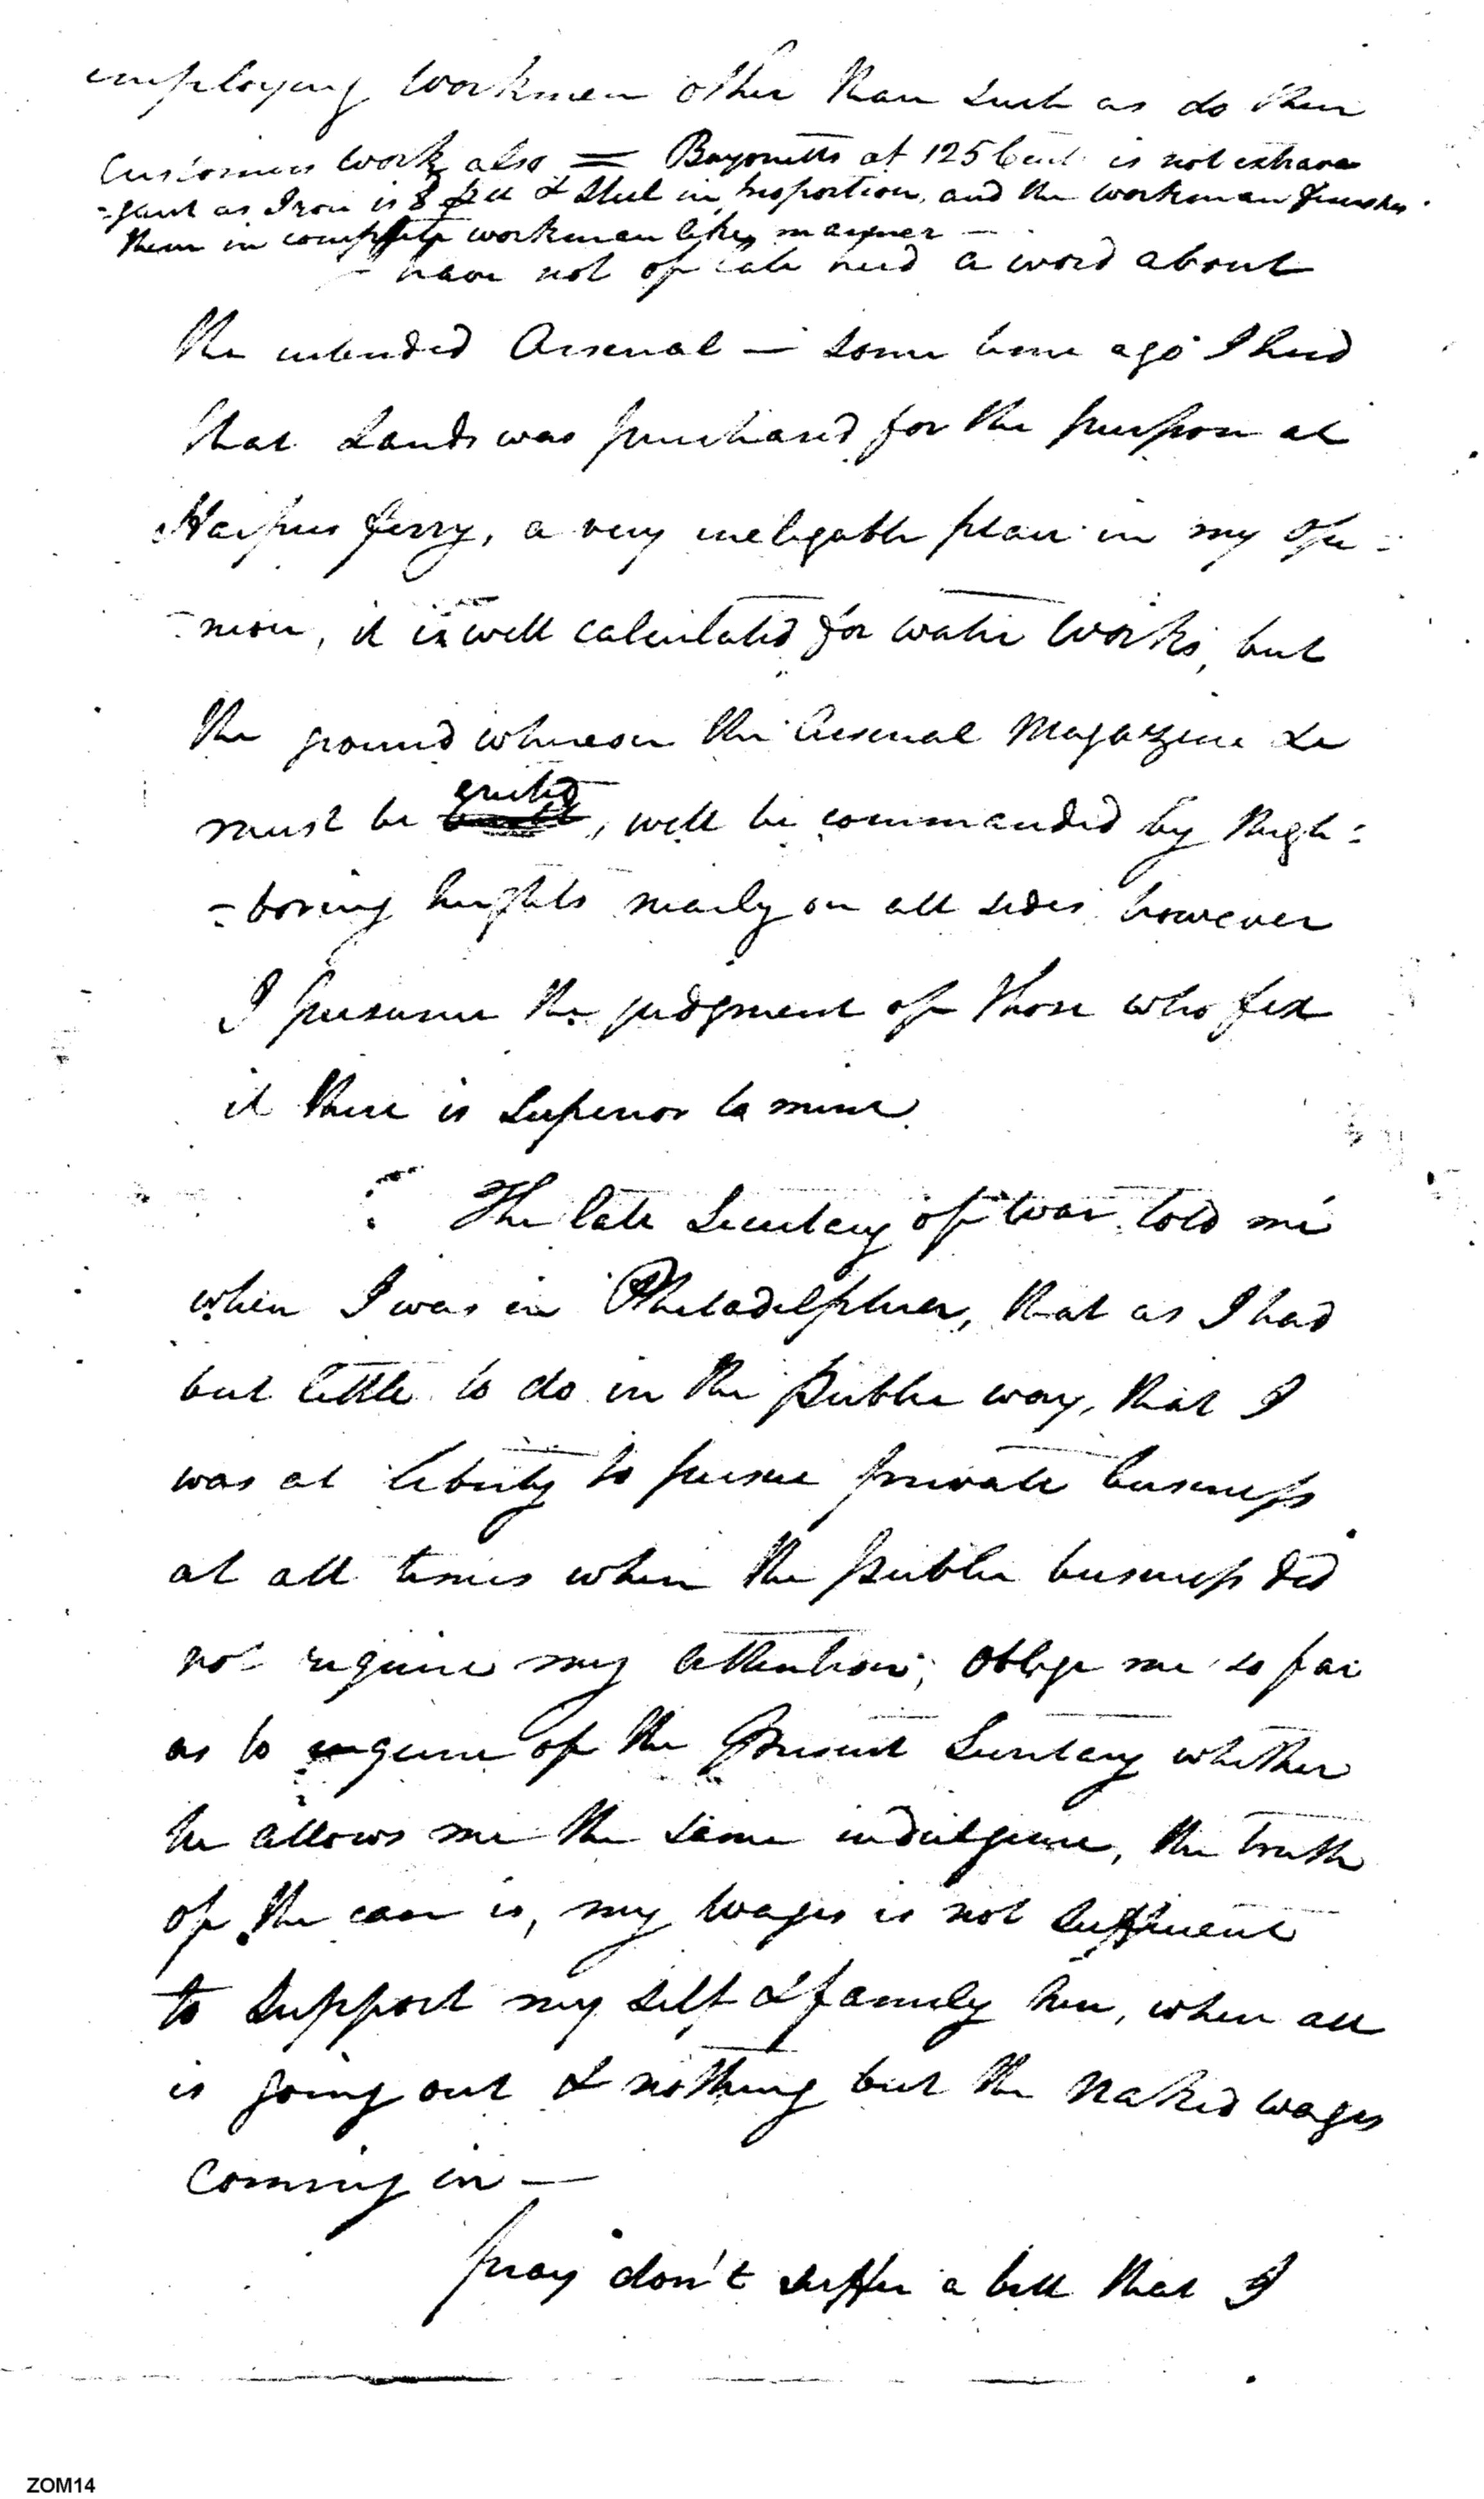 employing Workmen other than such as do their
Customers Work also = Bayonetts at 125 Cents is not extrava
=gant as Iron is 8 & Steel in proportion, and the workman finishes
them in complete workman like manner —
have not of late herd a word about
the intended Arsenal — some time ago I herd
that Lands was purchased for the purpose at
Harpers ferry, a very ineligable place in my Opi=
=nion, it is well calculated for water Works, but
the ground whereon the Arsenal Magazine &c
must be erected, will be commanded by Neigh=
=boring heights nearly on all sides however
I presume the judgment of those who fix
it there is Superior to mine
The late Secretary of War told me
when I was in Philadelphia, that as I had
but little to do in the Public way, that I
was at liberty to pursue private business
at all times when the public business did
not require my attention; oblige me so far
as to enquire of the Present Secretary whether
he allows me the same indulgence, the truth
of the case is, my Wages is not sufficient
to support my self & family here, when all
is going out & nothing but the Naked wages
Coming in —
pray don't suffer a bill that I
ZOM14